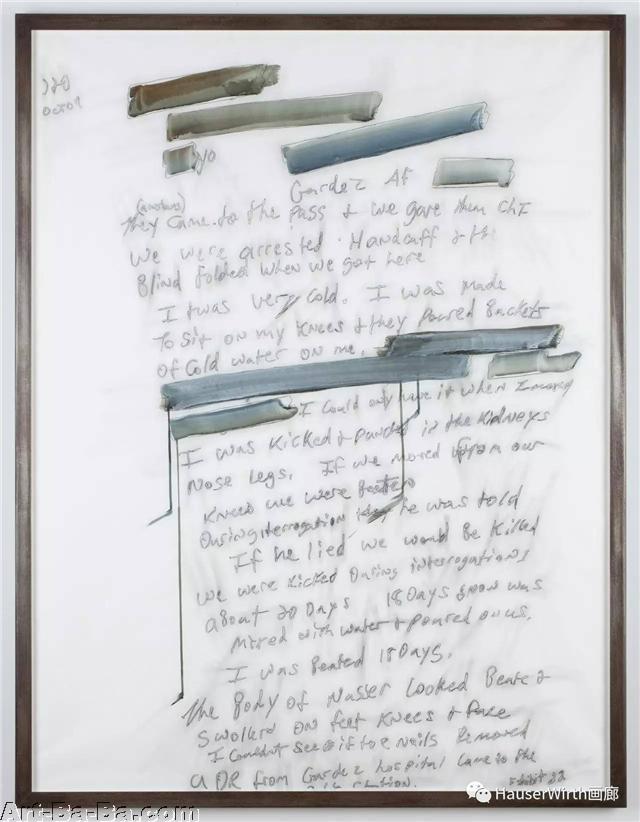 yo
Gardez Af
They Came to the Pass + we gave them
We were arrested. Handcuff +
Blind folded when we got here
I was very cold. I was made
To sit on my Knees + they Poured Buckets
Of Cold water on me.
I Could only have it when I moved
I was Kicked + Punched in the Kidneys
Nose Legs. If we moved from our
Knees we were Beaten
During interrogation he was told
If he lied we would Be Killed
We were Kicked During interrogations
about 20 Days 18 Days snow was
Mixed with water + Poured on us.
I was Beated 18 Days.
The Body of Nasser Looked Beate +
Swollen On feet Knees +
I Couldn't see if toe nails Removed
a DR from Gardez hospital Came to the
Exhibit 22
HauserWirth画廊
Art-Ba-Ba.com